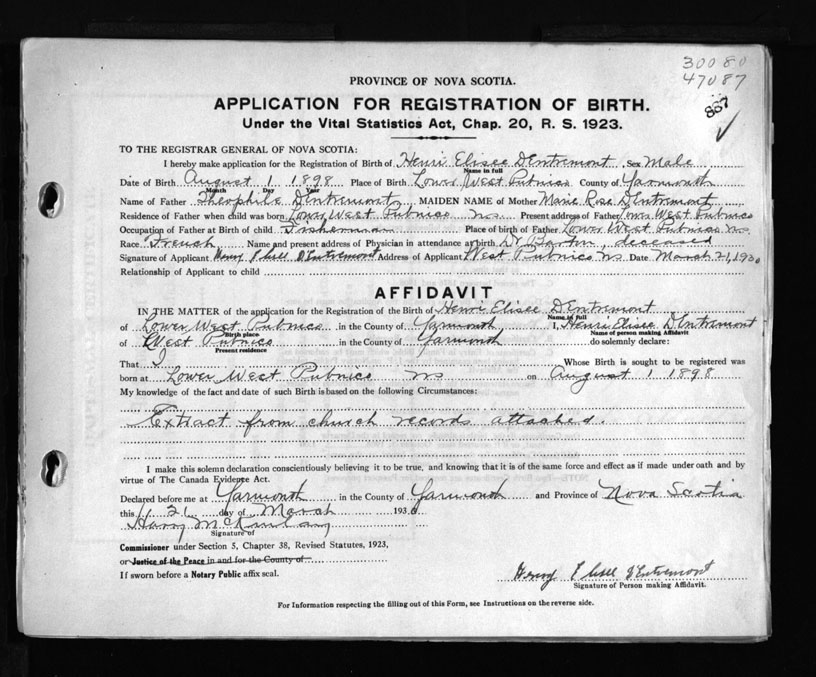 30080
47087
PROVINCE OF NOVA SCOTIA.
887
APPLICATION FOR REGISTRATION OF BIRTH.
Under the Vital Statistics Act, Chap. 20, R. S. 1923.
TO THE REGISTRAR GENERAL OF NOVA SCOTIA:
I hereby make application for the Registration of Birth of Henri Elisee DEntremont Sex Male
Name in full
Date of Birth August 1 1898 Place of Birth Lower West Pubnico County of Yarmouth
Month Day Year
Name of Father Theophile DEntremont MAIDEN NAME of Mother Marie Rose DEntremont
Residence of Father when child was born Lower West Pubnico NS Present address of Father Lower West Pubnico
Occupation of Father at Birth of child Fisherman Place of birth of Father Lower West Pubnico NS
Race French Name and present address of Physician in attendance at birth Dr Barton, deceased
Signature of Applicant Henry Elisee D'Entremont Address of Applicant West Pubnico NS Date March 21, 1930
Relationship of Applicant to child
AFFIDAVIT
IN THE MATTER of the application for the Registration of the Birth of Henri Elisee DEntremont
Name in full
of Lower West Pubnico in the County of Yarmouth I, Henri Elisee DEntremont
Birth place Name of person making Affidavit
of West Pubnico in the County of Yarmouth do solemnly declare:
Present residence
That I Whose Birth is sought to be registered was
born at Lower West Pubnico NS on August 1 1898
My knowledge of the fact and date of such Birth is based on the following Circumstances:
Extract from church records attached.
I make this solemn declaration conscientiously believing it to be true, and knowing that it is of the same force and effect as if made under oath and by
virtue of The Canada Evidence Act.
Declared before me at Yarmouth in the County of Yarmouth and Province of Nova Scotia
this 21 day of March 1930
Harry
Signature of
Commissioner under Section 5, Chapter 38, Revised Statutes, 1923,
or Justice of the Peace in and for the County of
If sworn before a Notary Public affix seal.
Henry Elisee D'Entremont
Signature of Person making Affidavit.
For Information respecting the filling out of this Form, see Instructions on the reverse side.